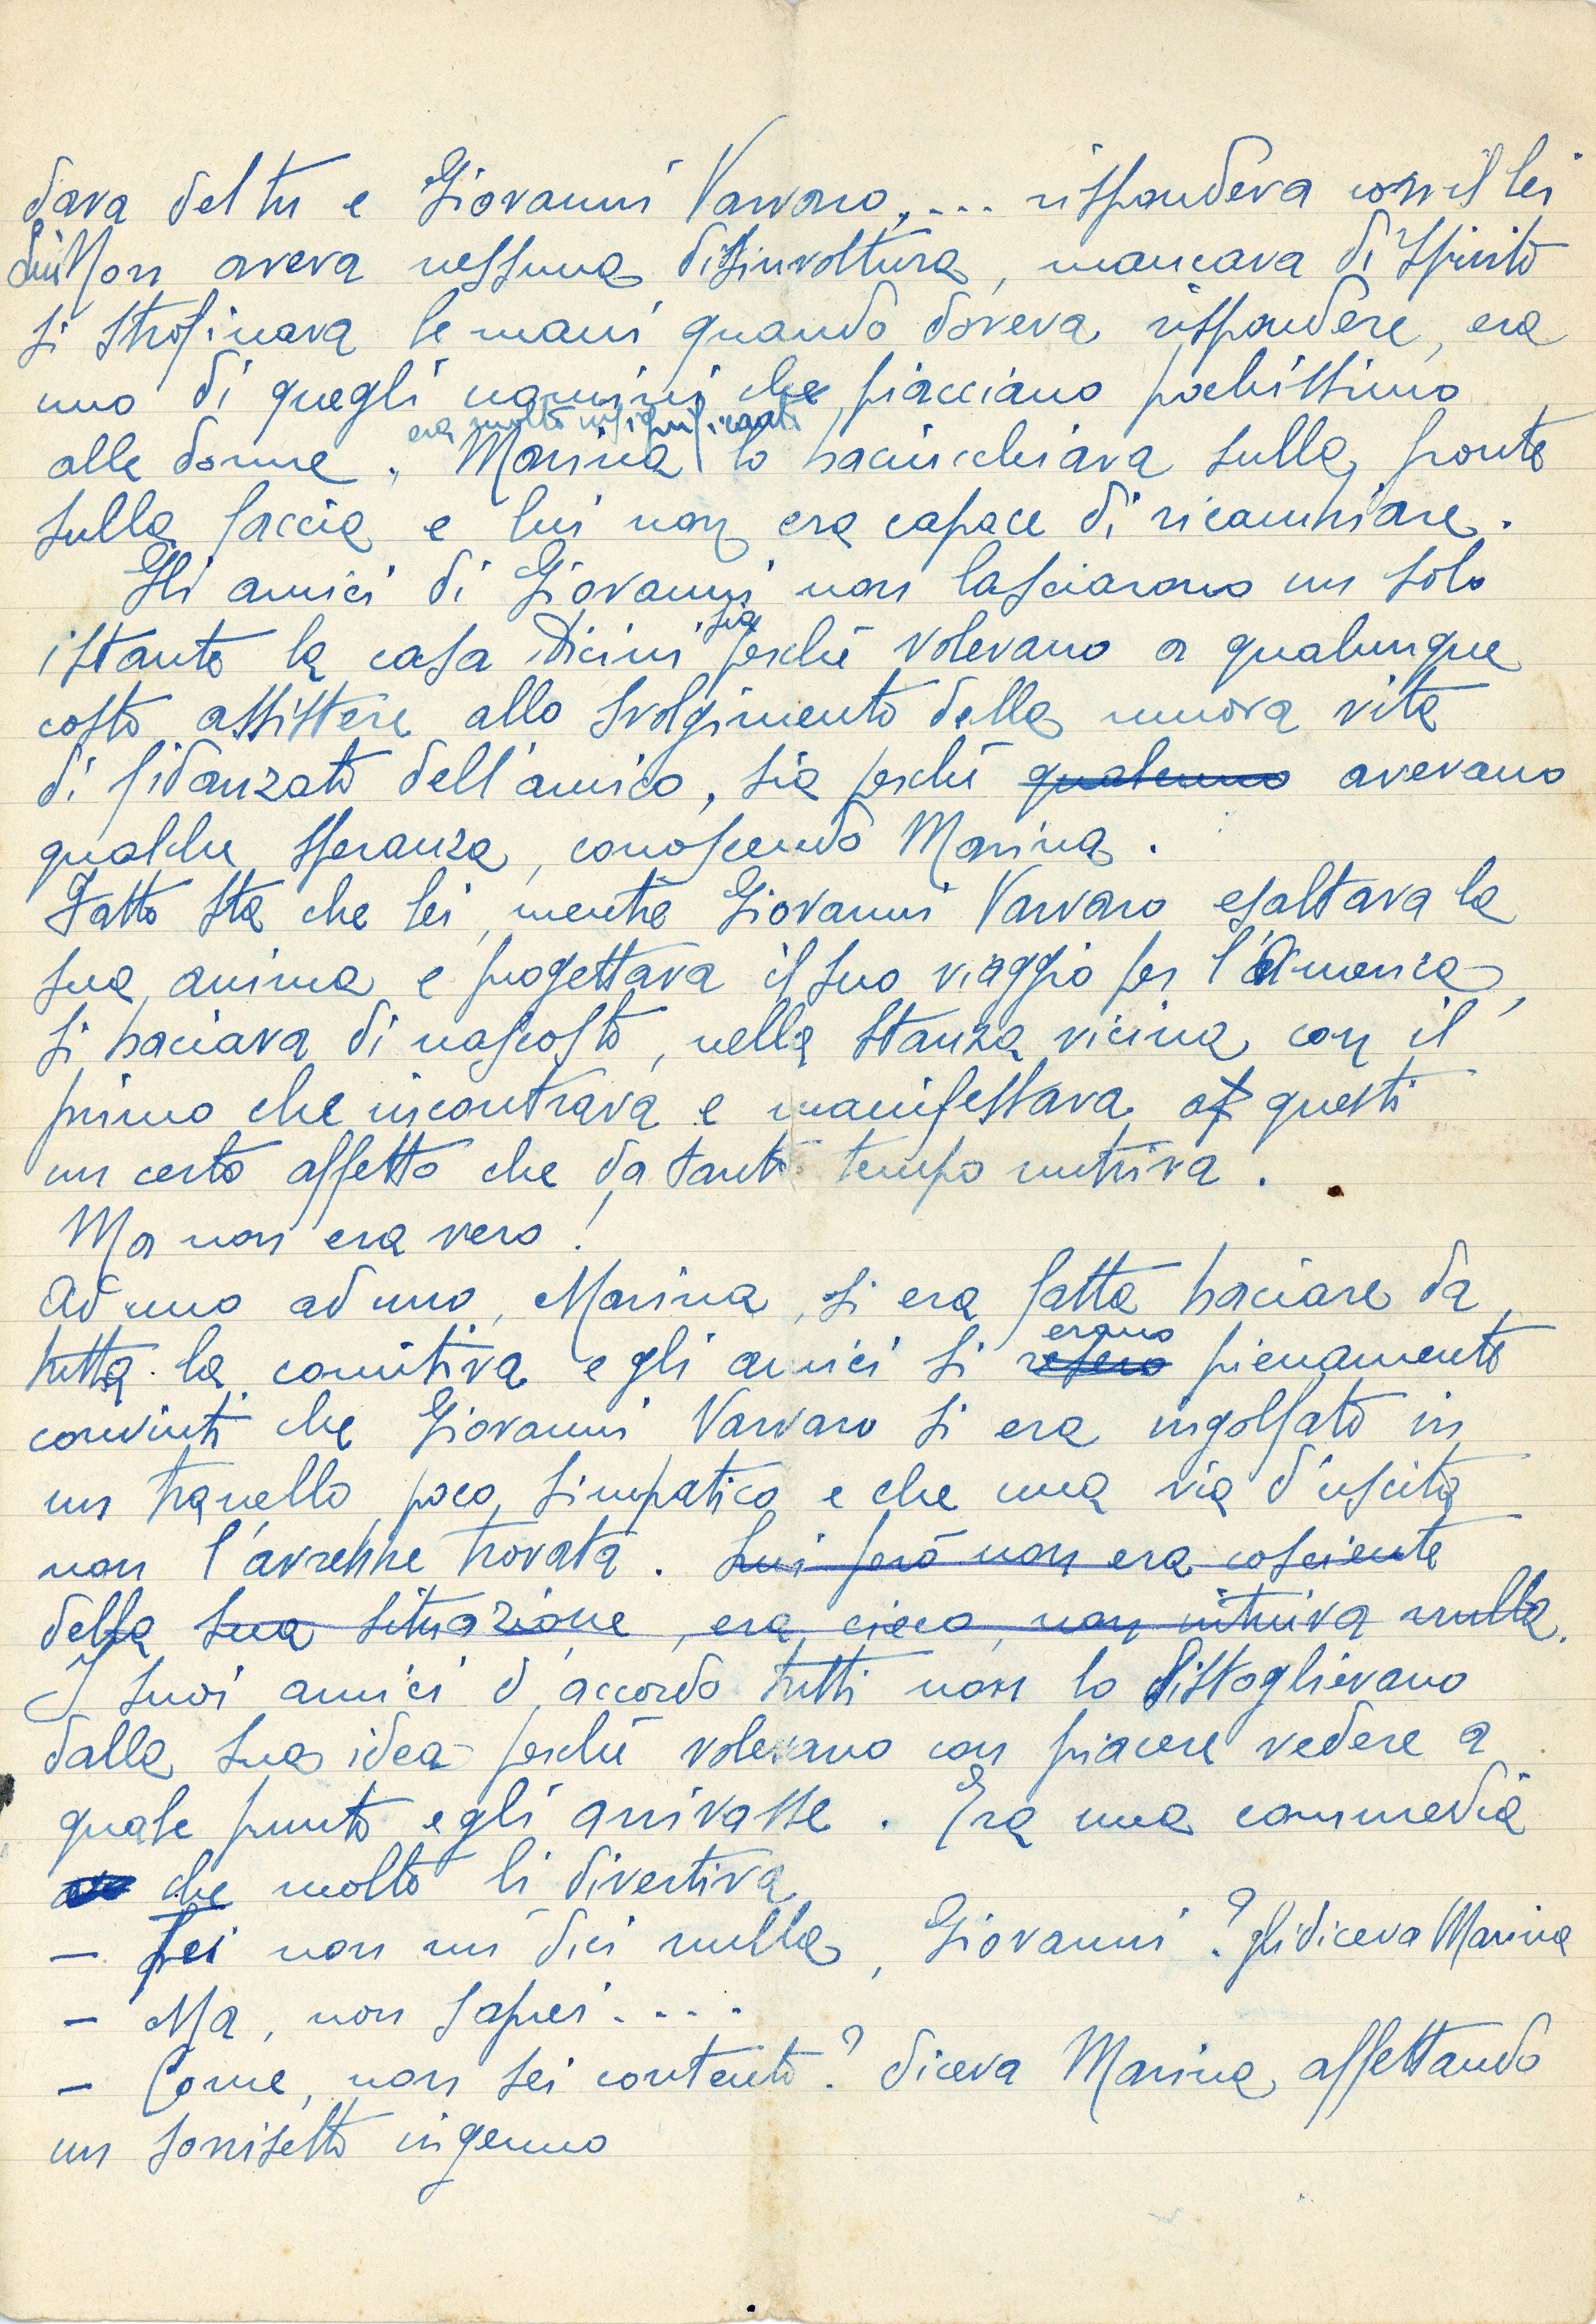 dava del tu e Giovanni Varvaro .... rispondeva con il lei
Lui Non aveva nessuna disinvoltura, mancava di spirito
si strofinava le mani quando doveva rispondere, era
uno di quegli uomini che piacciano pochissimo
era molto insignificante
alle donne. Marina lo baciucchiava sulla fronte
sulla faccia e lui non era capace di ricambiare.
Gli amici di Giovanni non lasciarono un solo
sia
istante la casa Dicini perchè volevano a qualunque
costo assistere allo svolgimento della nuova vita
di fidanzato dell'amico, sia perchè qualcuno avevano
qualche speranza, conoscendo Marina.
Fatto sta che lei, mentre Giovanni Varvaro esaltava la
sua anima e progettava il suo viaggio per l'America,
si baciava di nascosto, nella stanza vicina con il
primo che incontrava e manifestava a questi
un certo affetto che da tanto tempo nutriva.
Ma non era vero!
Ad uno ad uno, Marina, si era fatta baciare da
erano
tutta la comitiva e gli amici si resero pienamente
convinti che Giovanni Varvaro si era ingolfato in
un tranello poco simpatico e che una via d'uscita
non l'avrebbe trovata. Lui però non era cosciente
della sua situazione, era cieco, non intuiva nulla.
I suoi amici d'accordo tutti non lo distoglievano
dalla sua idea perchè volevano con piacere vedere a
quale punto egli arrivasse. Era una commedia
che molto li divertiva
- Lei non mi dici nulla, Giovanni? gli diceva Marina
- Ma, non saprei....
- Come, non sei contento? diceva Marina affettando
un sorrisetto ingenuo